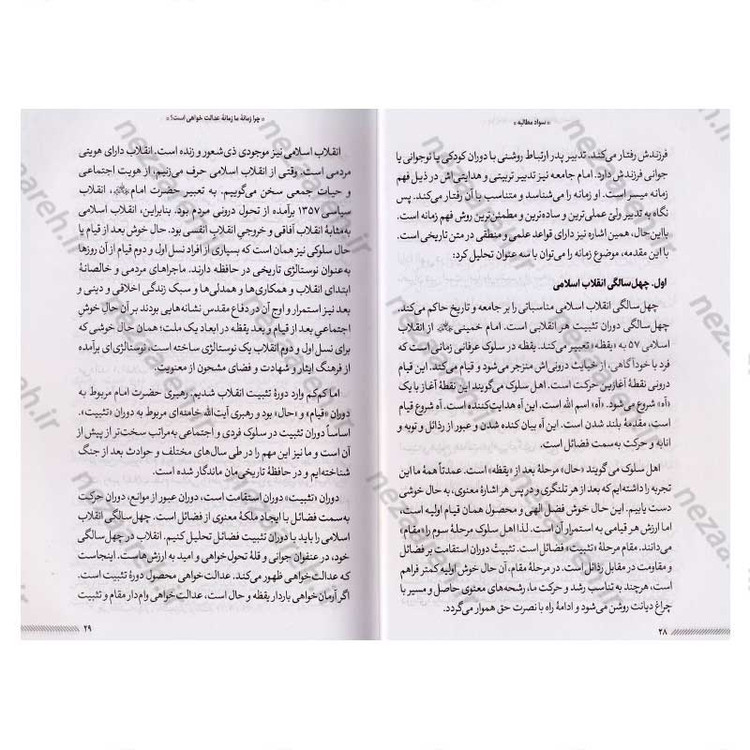 « سواد مطالبه »
فرزندش رفتار می‌کند. تدبیر پدر ارتباط روشنی با دوران کودکی یا نوجوانی یا
جوانی فرزندش دارد. امام جامعه نیز تدبیر تربیتی و هدایتی اش در ذیل فهم
زمانه میسر است. او زمانه را می‌شناسد و متناسب با آن رفتار می‌کند. پس
نگاه به تدبیر ولیّ عملی‌ترین و ساده‌ترین و مطمئن‌ترین روش فهم زمانه است.
بااین‌حال، همین اشاره نیز دارای قواعد علمی و منطقی در متن تاریخی است.
با این مقدمه، موضوع زمانه را می‌توان با سه عنوان تحلیل کرد:
اول. چهل‌سالگی انقلاب اسلامی
چهل‌سالگی انقلاب اسلامی مناسباتی را بر جامعه و تاریخ حاکم می‌کند.
چهل‌سالگی دوران تثبیت هر انقلابی است. امام خمینی از انقلاب
اسلامی ۵۷ به «یقظه» تعبیر می‌کند. یقظه در سلوک عرفانی زمانی است که
فرد با خودآگاهی، از خباثت درونی‌اش منزجر می‌شود و قیام می‌کند. این قیام
درونی نقطهٔ آغازین حرکت است. اهل سلوک می‌گویند این نقطهٔ آغاز با یک
«آه» شروع می‌شود. «آه» اسم الله است. این آه هدایت‌کننده است. آه شروع قیام
است، مقدمهٔ بلند شدن است. این آه بیان کنده شدن و عبور از رذائل و توبه و
انابه و حرکت به‌سمت فضائل است.
اهل سلوک می گویند «حال» مرحلهٔ بعد از «یقظه» است. عمدتاً همهٔ ما این
تجربه را داشته‌ایم که بعد از هر تلنگری و در پس هر اشارهٔ معنوی، به حال خوشی
دست یابیم. این حال خوش فضل الهی و محصول همان قیام اولیه است،
اما ارزش هر قیامی به استمرار آن است. لذا اهل سلوک مرحلهٔ سوم را «مقام»
می‌دانند. مقام مرحلهٔ «تثبیت» فضائل است. تثبیت دوران استقامت بر فضائل
و مقاومت در مقابل رذائل است. در مرحلهٔ مقام، آن حال خوش اولیه کمتر فراهم
است، هرچند به تناسب رشد و حرکت ما، رشحه‌های معنوی حاصل و مسیر با
چراغ دیانت روشن می‌شود و ادامهٔ راه با نصرت حق هموار می‌گردد.
۲۸
« چرا زمانهٔ ما زمانهٔ عدالت خواهی است؟ »
انقلاب اسلامی نیز موجودی ذی‌شعور و زنده است. انقلاب دارای هویتی
مردمی است. وقتی از انقلاب اسلامی حرف می‌زنیم، از هویت اجتماعی
و حیات جمعی سخن می‌گوییم. به تعبیر حضرت امام، انقلاب
سیاسی ۱۳۵۷ برآمده از تحول درونی مردم بود. بنابراین، انقلاب اسلامی
به‌مثابهٔ انقلاب آفاقی و خروجی انقلاب انفسی بود. حال خوش بعد از قیام یا
حال سلوکی نیز همان است که بسیاری از افراد نسل اول و دوم قیام از آن روزها
به‌عنوان نوستالژی تاریخی در حافظه دارند. ماجراهای مردمی و خالصانهٔ
ابتدای انقلاب و همکاری‌ها و همدلی‌ها و سبک زندگی اخلاقی و دینی و
بعد نیز استمرار و اوج آن در دفاع مقدس نشانه‌هایی بودند بر آن حال خوشِ
اجتماعی بعد از قیام و بعد یقظه در ابعاد یک ملت؛ همان حال خوشی که
برای نسل اول و دوم انقلاب یک نوستالژی ساخته است، نوستالژی‌ای برآمده
از فرهنگ ایثار و شهادت و فضای مشحون از معنویت.
اما کم‌کم وارد دورهٔ تثبیت انقلاب شدیم. رهبری حضرت امام مربوط به
دوران «قیام» و «حال» بود و رهبری آیت‌الله خامنه‌ای مربوط به دوران «تثبیت».
اساساً دوران تثبیت در سلوک فردی و اجتماعی به‌مراتب سخت‌تر از پیش از
آن است و ما نیز این مهم را در طی سال‌های مختلف و حوادث بعد از جنگ
شناخته‌ایم و در حافظهٔ تاریخی‌مان ماندگار شده است.
دوران «تثبیت» دوران استقامت است، دوران عبور از موانع، دوران حرکت
به‌سمت فضائل با ایجاد ملکهٔ معنوی از فضائل است. چهل‌سالگی انقلاب
اسلامی را باید با دوران تثبیت فضائل تحلیل کنیم. انقلاب در چهل‌سالگی
خود، در عنفوان جوانی و قلهٔ تحول‌خواهی و امید به ارزش‌هاست. اینجاست
که عدالت خواهی ظهور می‌کند. عدالت خواهی محصول دورهٔ تثبیت است.
اگر آرمان‌خواهی باردار یقظه و حال است، عدالت خواهی وام‌دار مقام و تثبیت
۲۹
nezaareh.ir